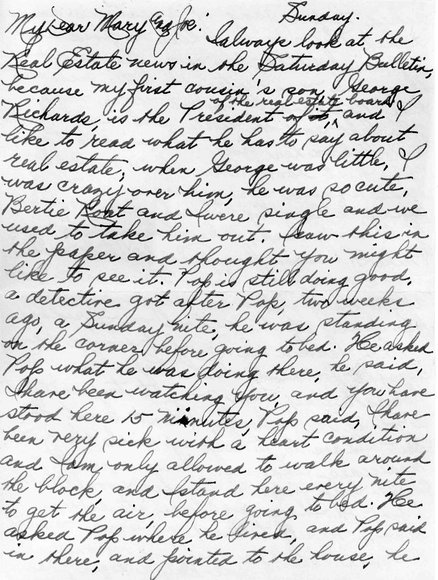 Sunday.
My Dear Mary and Joe: I always look at the
Real Estate news in the Saturday Bulletin,
because my first cousin's son, George
Richards, is the President of the real estate board, and I
like to read what he has to say about
real estate; when George was little, I
was crazy over him, he was so cute,
Bertie and I were single and we
used to take him out. I saw this in
the paper and thought you might
like to see it. Pop is still doing good,
a detective got after Pop two weeks
ago, a Sunday nite, he was standing
on the corner before going to bed. He asked
Pop what he was doing there, he said,
I have been watching you, and you have
stood here 15 minutes, Pop said, I have
been very sick with a heart condition
and I am only allowed to walk around
the block, and I stand here every nite
to get the air, before going to bed. He
asked Pop where he lived, and Pop said
in there, and pointed to the house, he